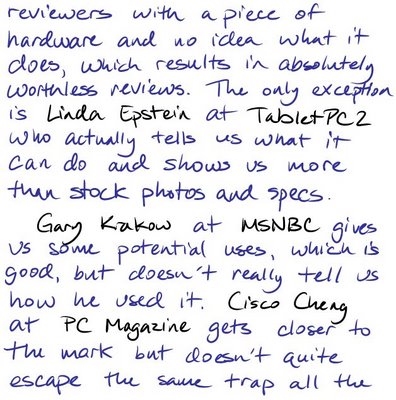 reviewers with a piece of
hardware and no idea what it
does, which results in absolutely
worthless reviews. The only exception
is Linda Epstein at TabletPC2
who actually tells us what it
can do and shows us more
than stock photos and specs.
Gary Krakow at MSNBC gives
us some potential uses, which is
good, but doesn't really tell us
how he used it. Cisco Cheng
at PC Magazine gets closer to
the mark but doesn't quite
escape the same trap all the